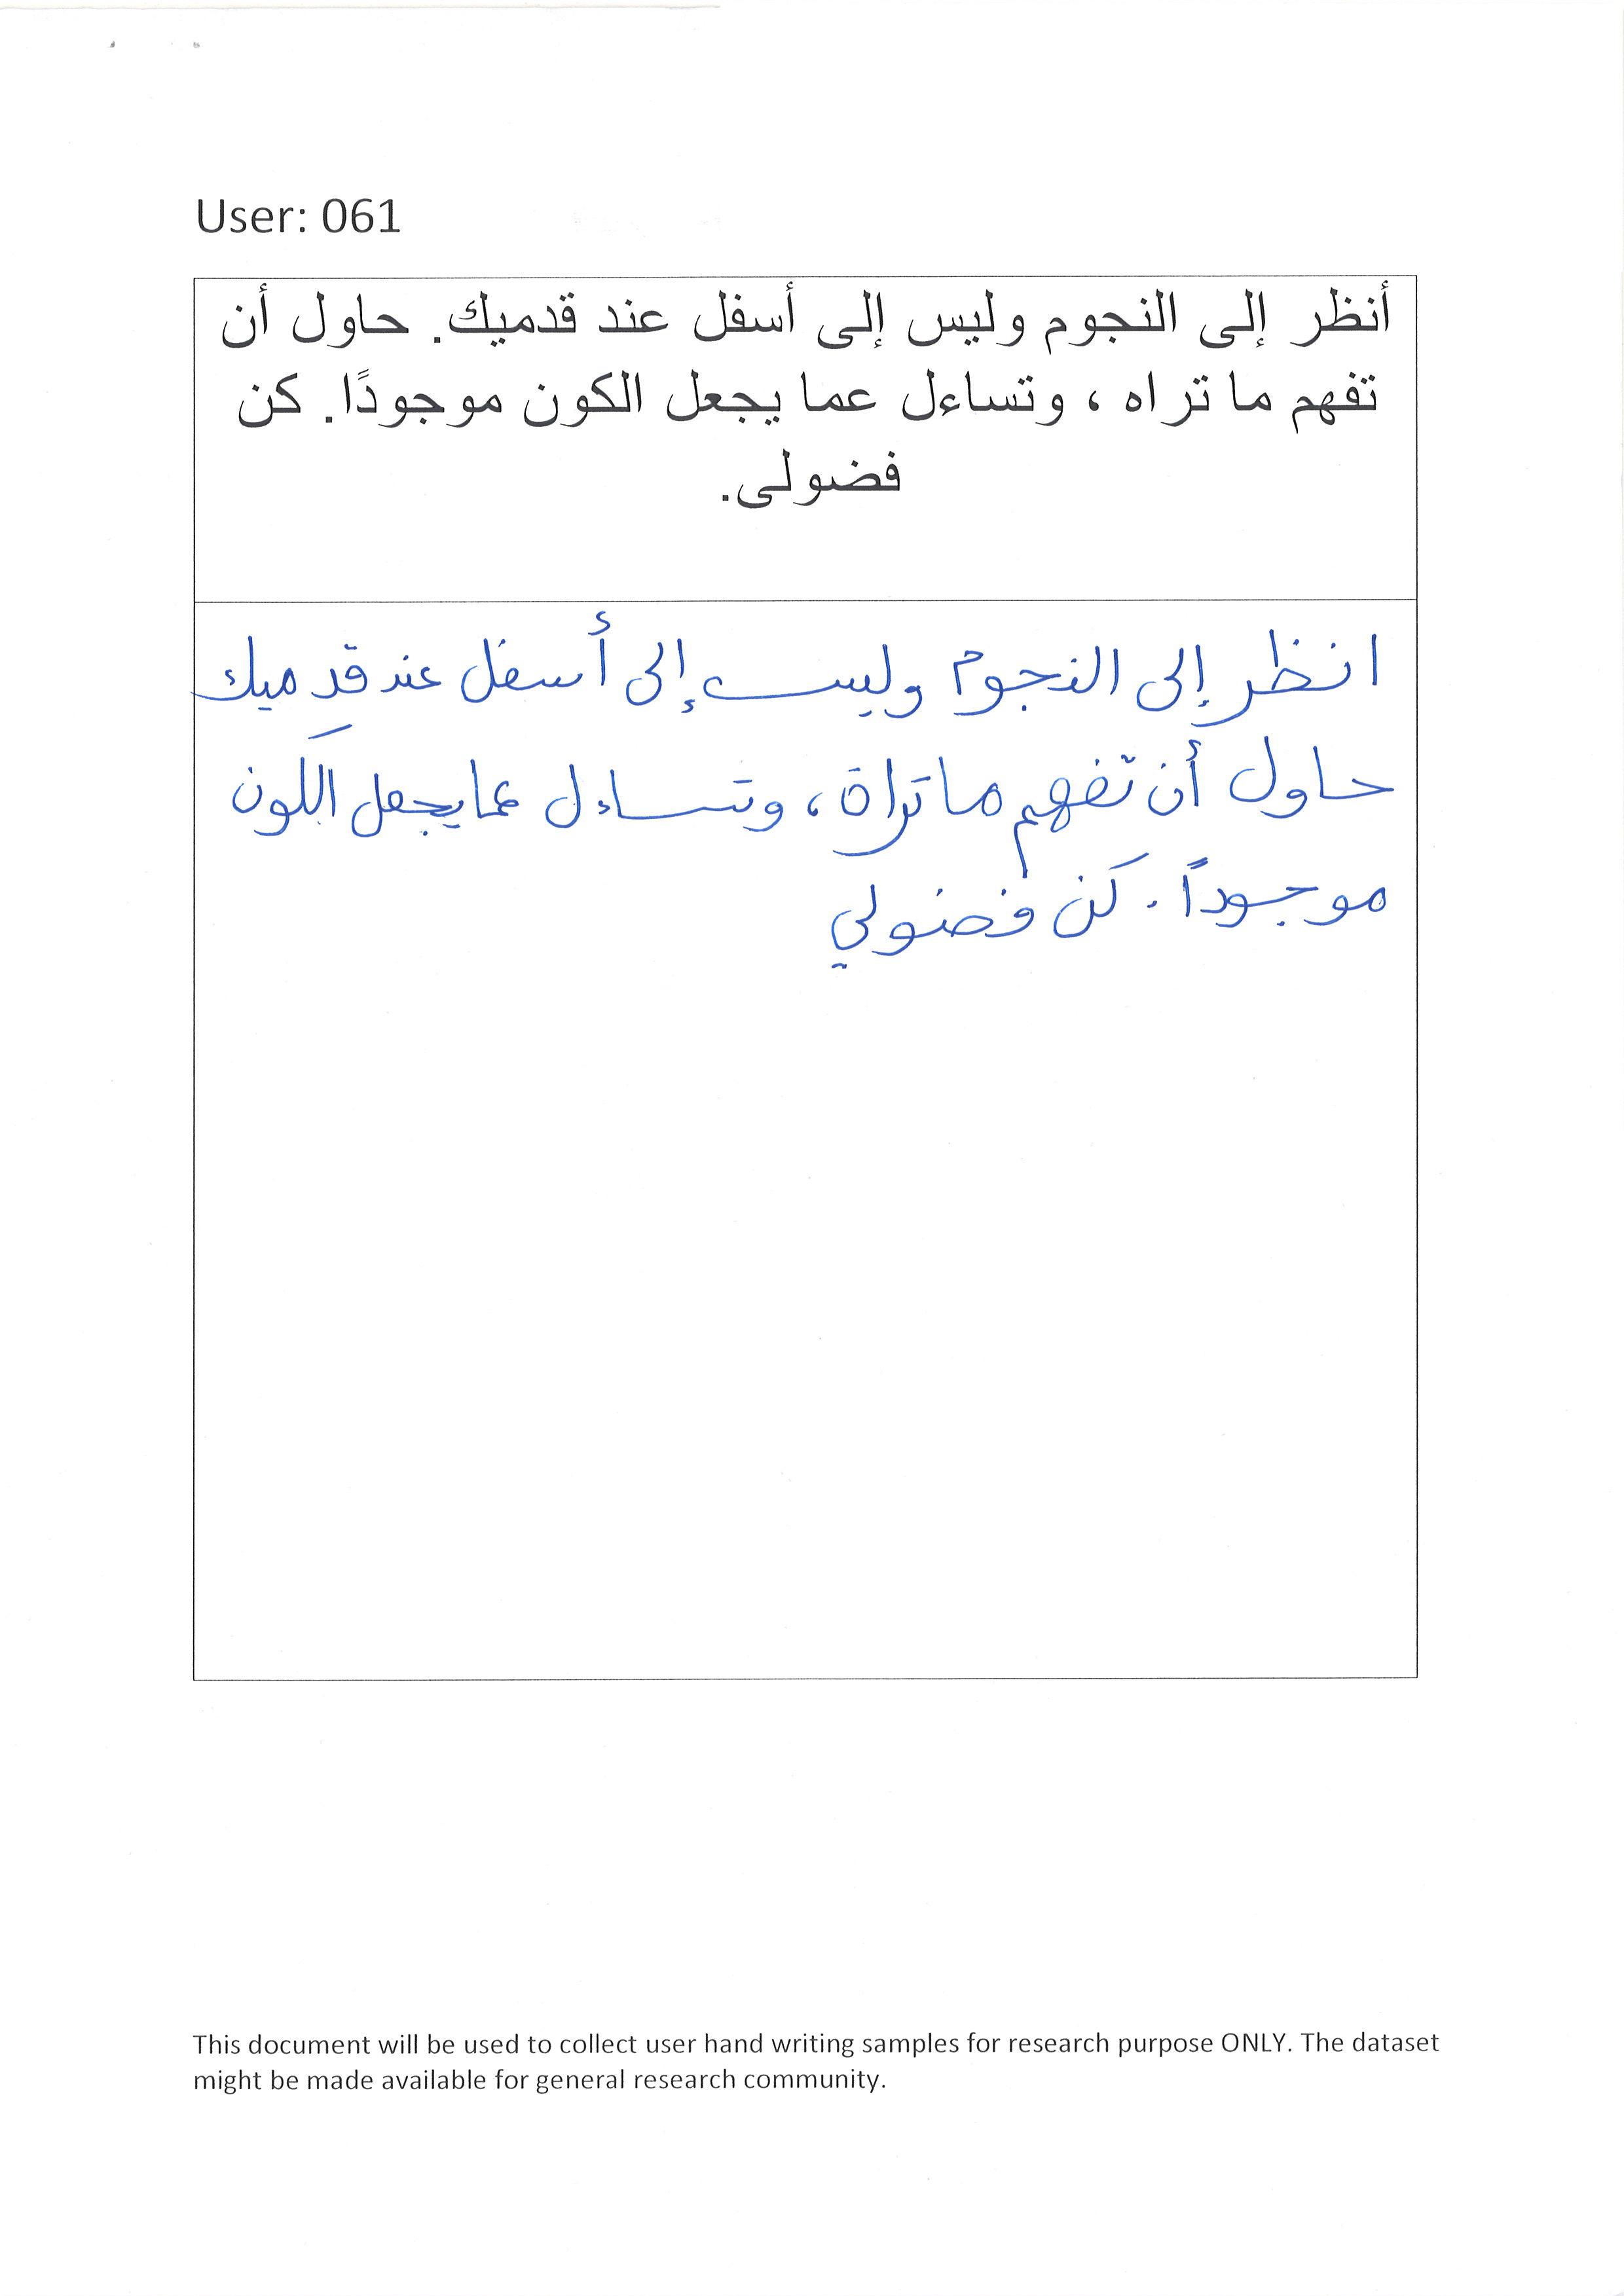 User: 061
أنظر إلى النجوم وليس إلى أسفل عند قدميك. حاول أن
تفهم ما تراه ، وتساءل عما يجعل الكون موجودًا. كن
فضولى.
انظر إلى النجوم وليس إلى أسفل عند قدميك
حاول أن تفهم ما تراة ، وتساءل عما يجعل الكون
موجوداً . كن فضولي
This document will be used to collect user hand writing samples for research purpose ONLY. The dataset
might be made available for general research community.